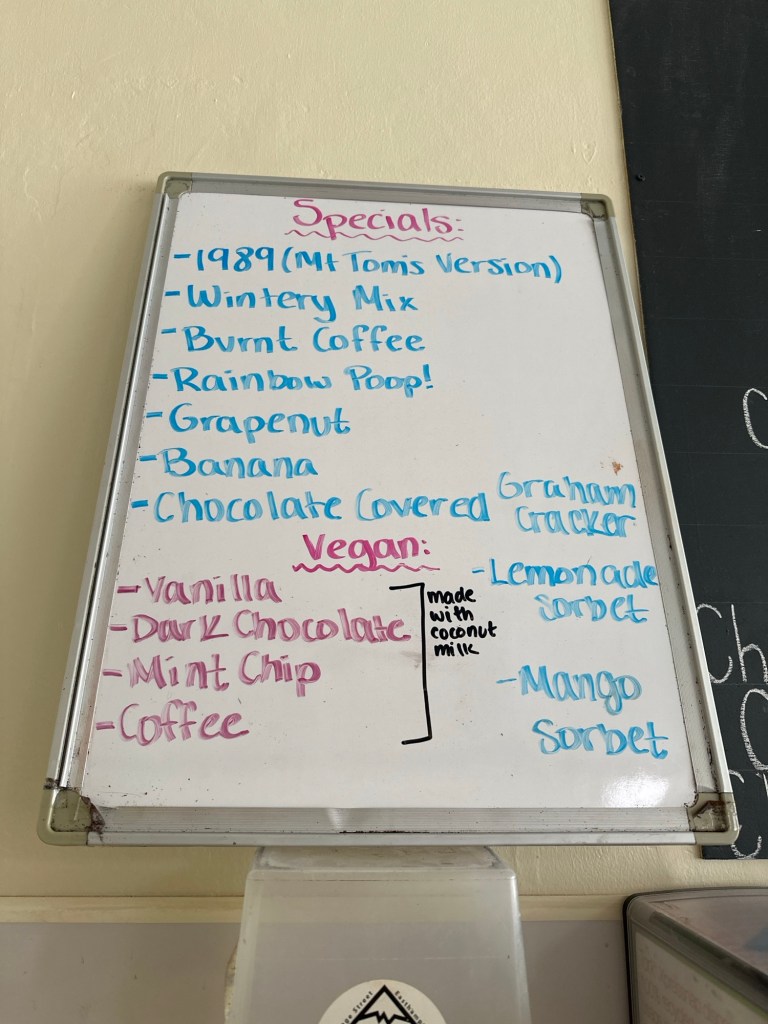 Specials:
-1989 (Mt Tom's Version)
-Wintery Mix
-Burnt Coffee
-Rainbow Poop!
-Grapenut
-Banana
-Chocolate Covered Graham
Cracker
Vegan:
-Vanilla
-Dark Chocolate
-Mint Chip
-Coffee
made
with
coconut
milk
-Lemonade
Sorbet
-Mango
Sorbet